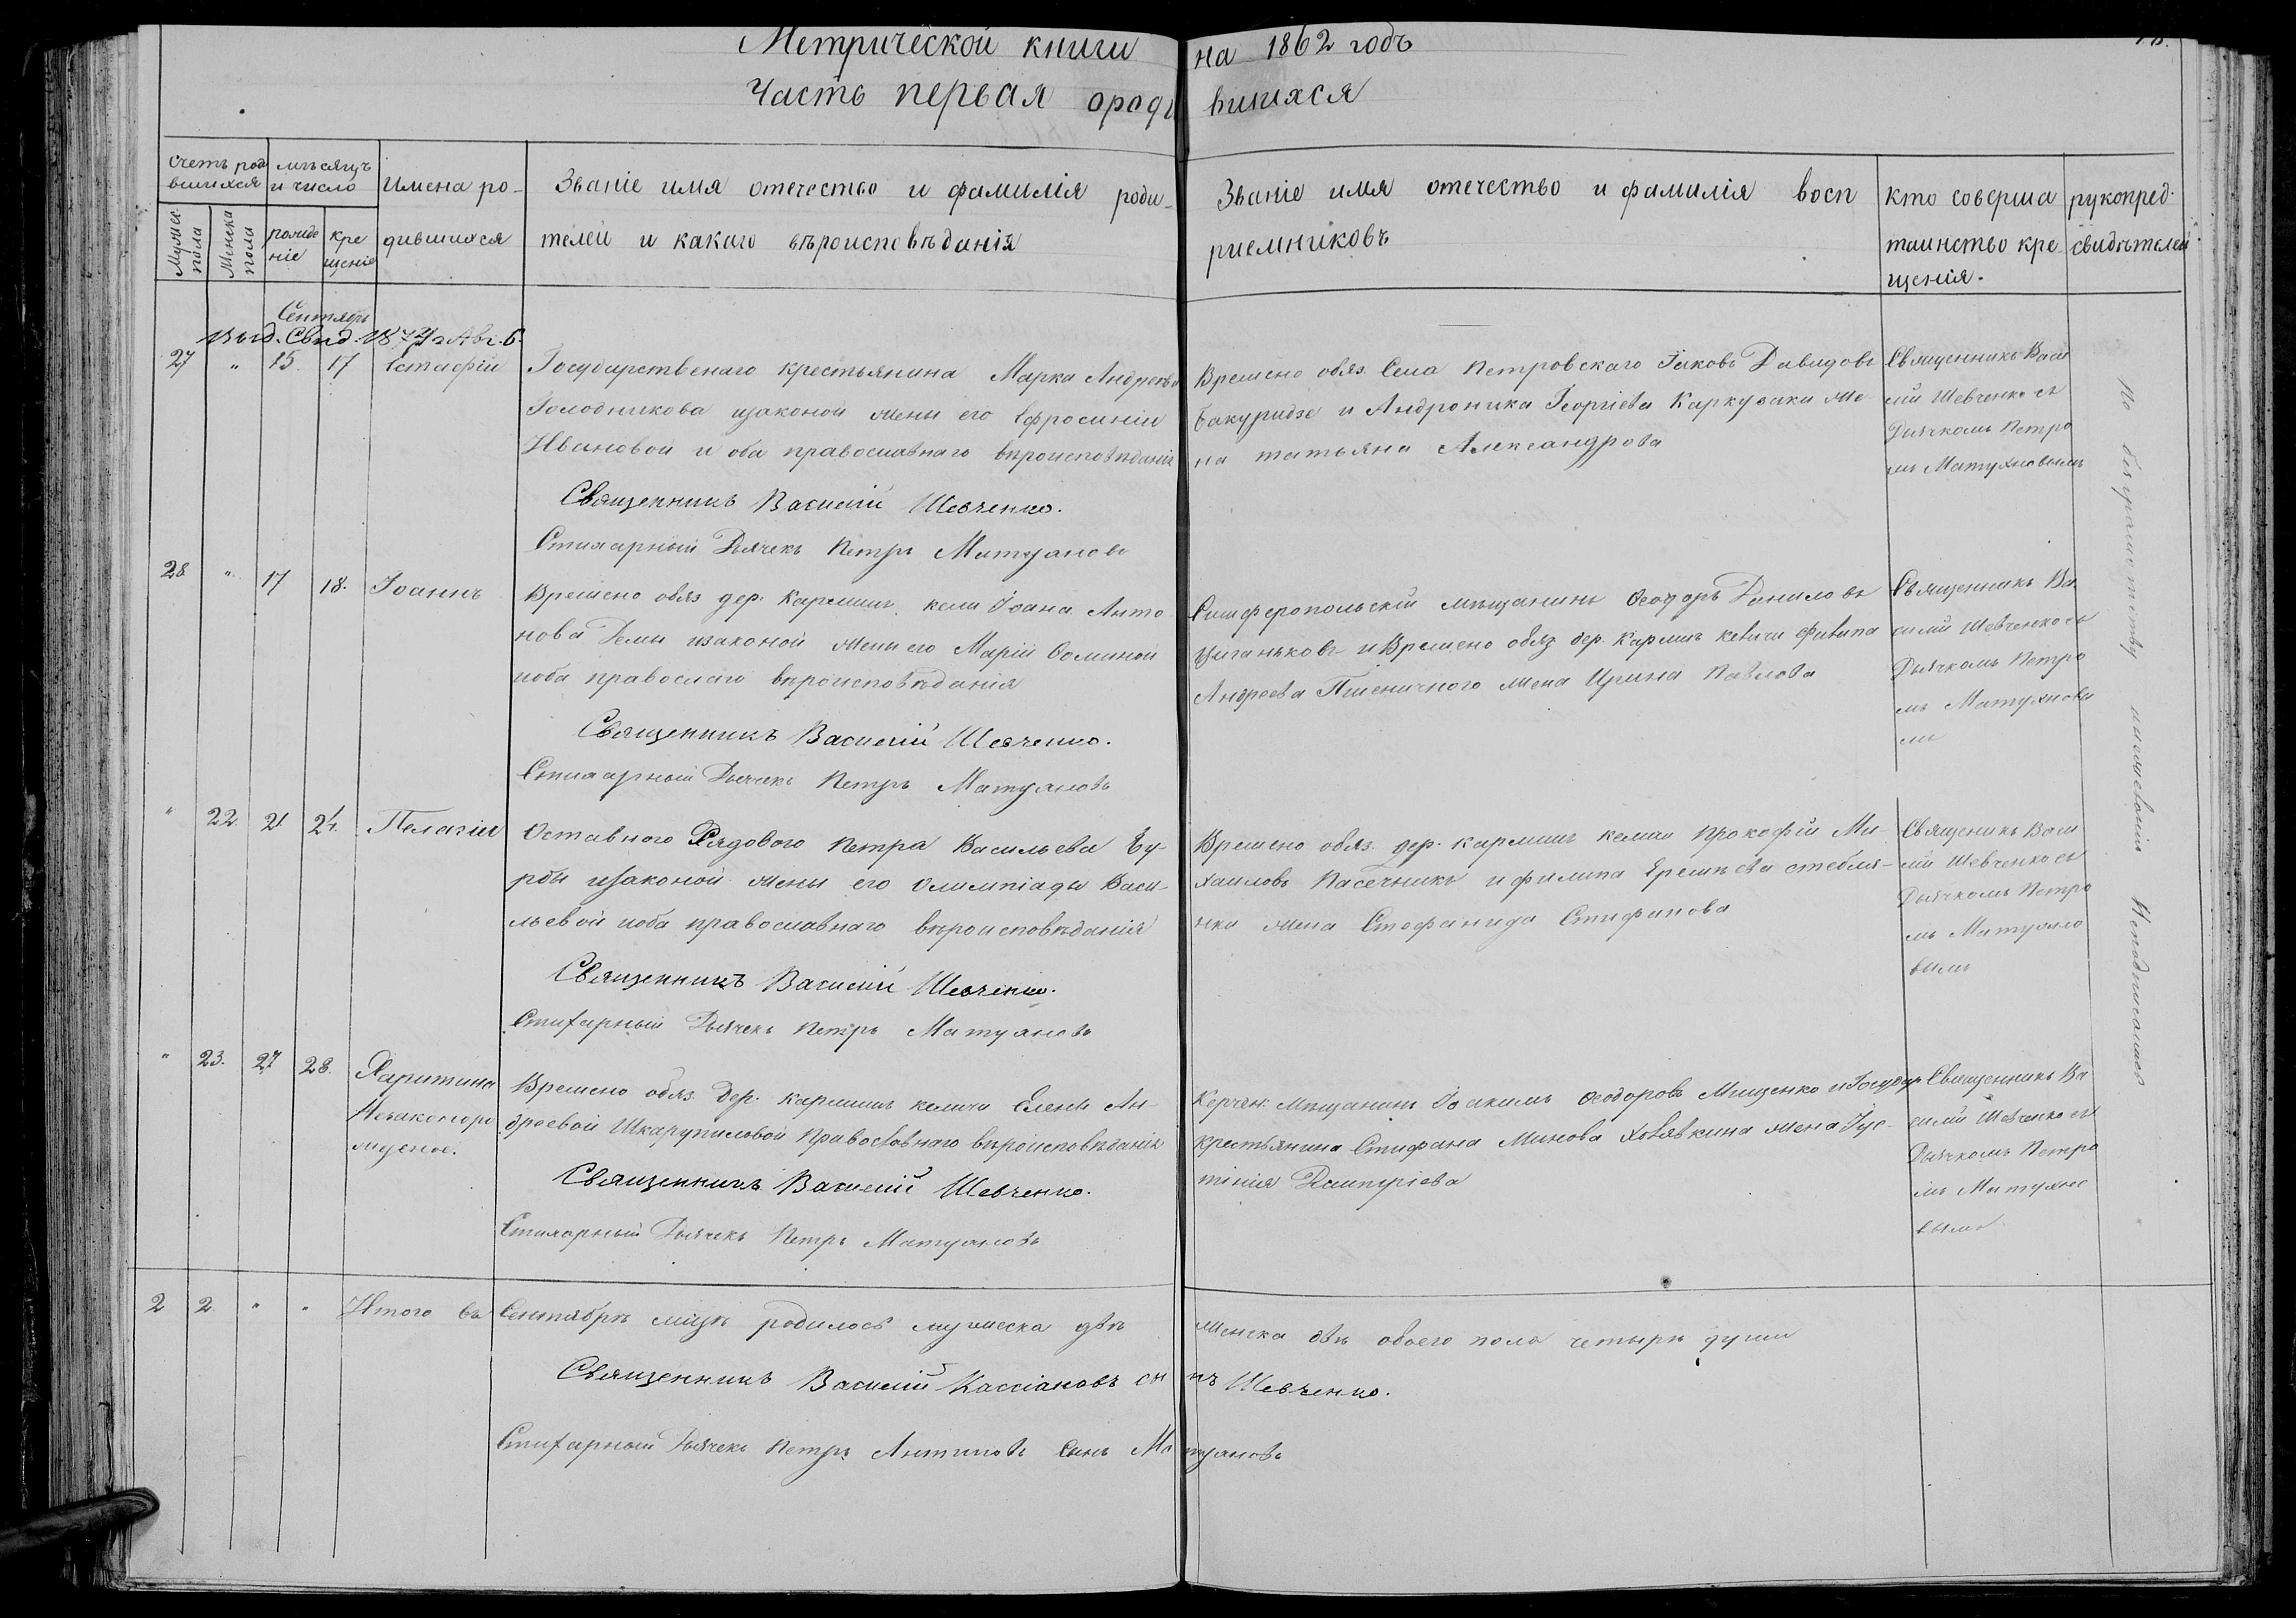 Метрической книги на 1862 годъ
Часть первая ородившихся
Счетъ родившихся
мѣсяцъ и число
Имена родившихся
Званіе имя отечество и фамилія родителей и какаго вѣроисповѣданія
Званіе имя отечество и фамилія восприемниковъ
кто соверша таинство крещенія.
рукопред. свидѣтелей
Мужес. пола
Женска пола
рожденіе
крещеніе
Сентябрь
Выд. Свид. 187 г. Авг. 6.
27 " 15. 17 Естафій
Государственаго крестьянина Марка Андреева
Голодникова изаконой жены его Ефросиніи
Ивановой и оба православнаго вѣроисповѣданія
Священникъ Василій Шевченко.
Стихарный Дьячекъ Петръ Матухновъ
Времено обяз. Села Петровскаго Іаковъ Давидовъ
Бакуридзе и Андроника Георгіева Каркузаки же-
на татьяна Александрова
Священникъ Васи
лій Шевченко съ
Дьячкомъ Петро
мъ Матухновымъ
28 " 17 18. Іоаннъ
Времено обяз дер. Кармишъ кели Іоана Анто
нова Демы изаконой жены его Маріи Фоминой
иоба правослаго вѣроисповѣданія
Священникъ Василій Шевченко.
Стихарный Дьячекъ Петръ Матухновъ
Симферопольскій мѣщанинъ Ѳеодоръ Даниловъ
Циганьковъ и Времено обяз дер. Кармишъ келичи Филипа
Андреева Пшеничного жена Ирина Павлова
Священникъ Ва
силій Шевченко съ
Дьячкомъ Петро
мъ Матухновы
мъ
" 22. 21. 24. Пелагіи
Оставного Рядового Петра Васильева Бу-
рды изаконой жены его Олимпіады Васи-
льевой иоба православнаго вѣроисповѣданія
Священникъ Василій Шевченко.
Стихарный Дьячекъ Петръ Матухновъ
Времено обяз. дер. кармишъ келичи Прокофій Ми-
хаиловъ Пасечникъ и филипа Еремѣева стебля-
нки жена Стефанида Стифанова
Священикъ Васи
лій Шевченко съ
Дьячкомъ Петро
мъ Матухно
вымъ
" 23. 27 28. Харитина
Незаконоро
жденое.
Времено обяз. дер. кармишъ келичи Елены Ан-
дреевой Шкарупиловой Православнаго вѣроисповѣданія
Священникъ Василій Шевченко.
Стихарный Дьячекъ Петръ Матухновъ
Керчен. Мѣщанинъ Іоакимъ Ѳеодоровъ Мищенко и Государ
Крестьянина Стифана Минова Ховявкина жена Іус-
тинія Димитріева
Священникъ Ва
силій Шевченко съ
Дьячкомъ Петро
мъ Матухно
вымъ
По безграмотству
Неподписались
2 2. " " Итого въ Сентябрѣ мцѣ родилось мужеска двѣ женска двѣ обоего пола четырѣ души
Священникъ Василій Кассіановъ сынъ Шевченко.
Стихарный Дьячекъ Петръ Антиповъ Сынъ Матухновъ